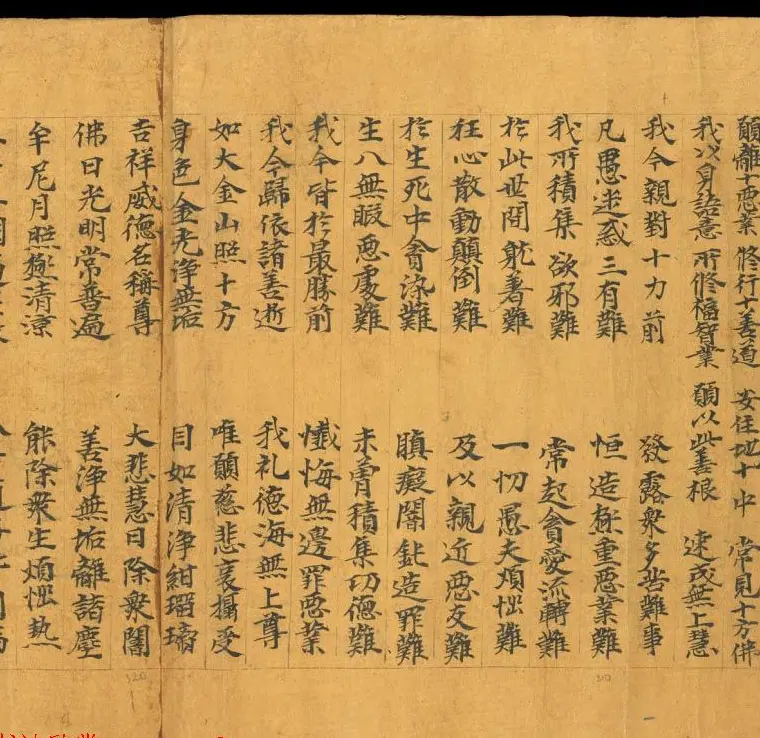 願離十惡業 修行十善道 安住地十中 常見十方佛
我以身語意 所修福智業 願以此善根 速成無上慧
我今親對十力前 發露衆多苦難事
凡愚迷惑三有難 恒造極重惡業難
我所積集欲邪難 常起貪愛流轉難
於此世間躭著難 一切愚夫煩惱難
狂心散動顛倒難 及以親近惡友難
於生死中貪染難 瞋癡闇鈍造罪難
生八無暇惡處難 未曾積集功德難
我今皆於最勝前 懺悔無邊罪惡業
我今歸依諸善逝 我礼德海無上尊
如大金山照十方 唯願慈悲哀攝受
身色金光淨無垢 目如清淨紺瑠璃
吉祥威德名稱尊 大悲慧日除衆闇
佛日光明常普遍 善淨無垢離諸塵
牟尼月照極清涼 能除衆生煩惱熱
310
320